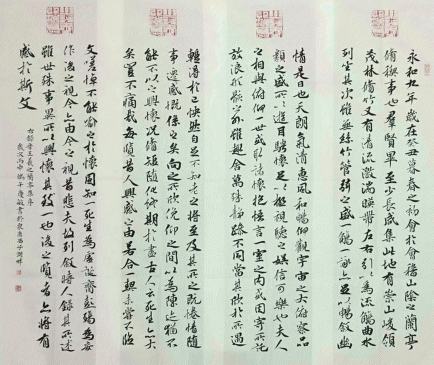 永和九年歲在癸丑暮春之初會於會稽山陰之蘭亭
脩禊事也群賢畢至少長咸集此地有崇山峻領
茂林脩竹又有清流激湍映帶左右引以為流觴曲水
列坐其次雖無絲竹管弦之盛一觴一詠亦足以暢敘幽
情是日也天朗氣清惠風和暢仰觀宇宙之大俯察品
類之盛所以遊目騁懷足以極視聽之娛信可樂也夫人
之相與俯仰一世或取諸懷抱悟言一室之內或因寄所託
放浪形骸之外雖趣舍萬殊靜躁不同當其欣於所遇
輒得於己快然自足不知老之將至及其所之既惓情隨
事遷感慨係之矣向之所欣俛仰之間以為陳迹猶不
能不以之興懷況脩短隨化終期於盡古人云死生亦大
矣豈不痛哉每攬昔人興感之由若合一契未嘗不臨
文嗟悼不能喻之於懷固知一死生為虛誕齊彭殤為妄
作後之視今亦由今之視昔悲夫故列敘時人錄其所述
雖世殊事異所以興懷其致一也後之攬者亦將有
感於斯文
右錄晉王羲之蘭亭集序
歲次丙申端午